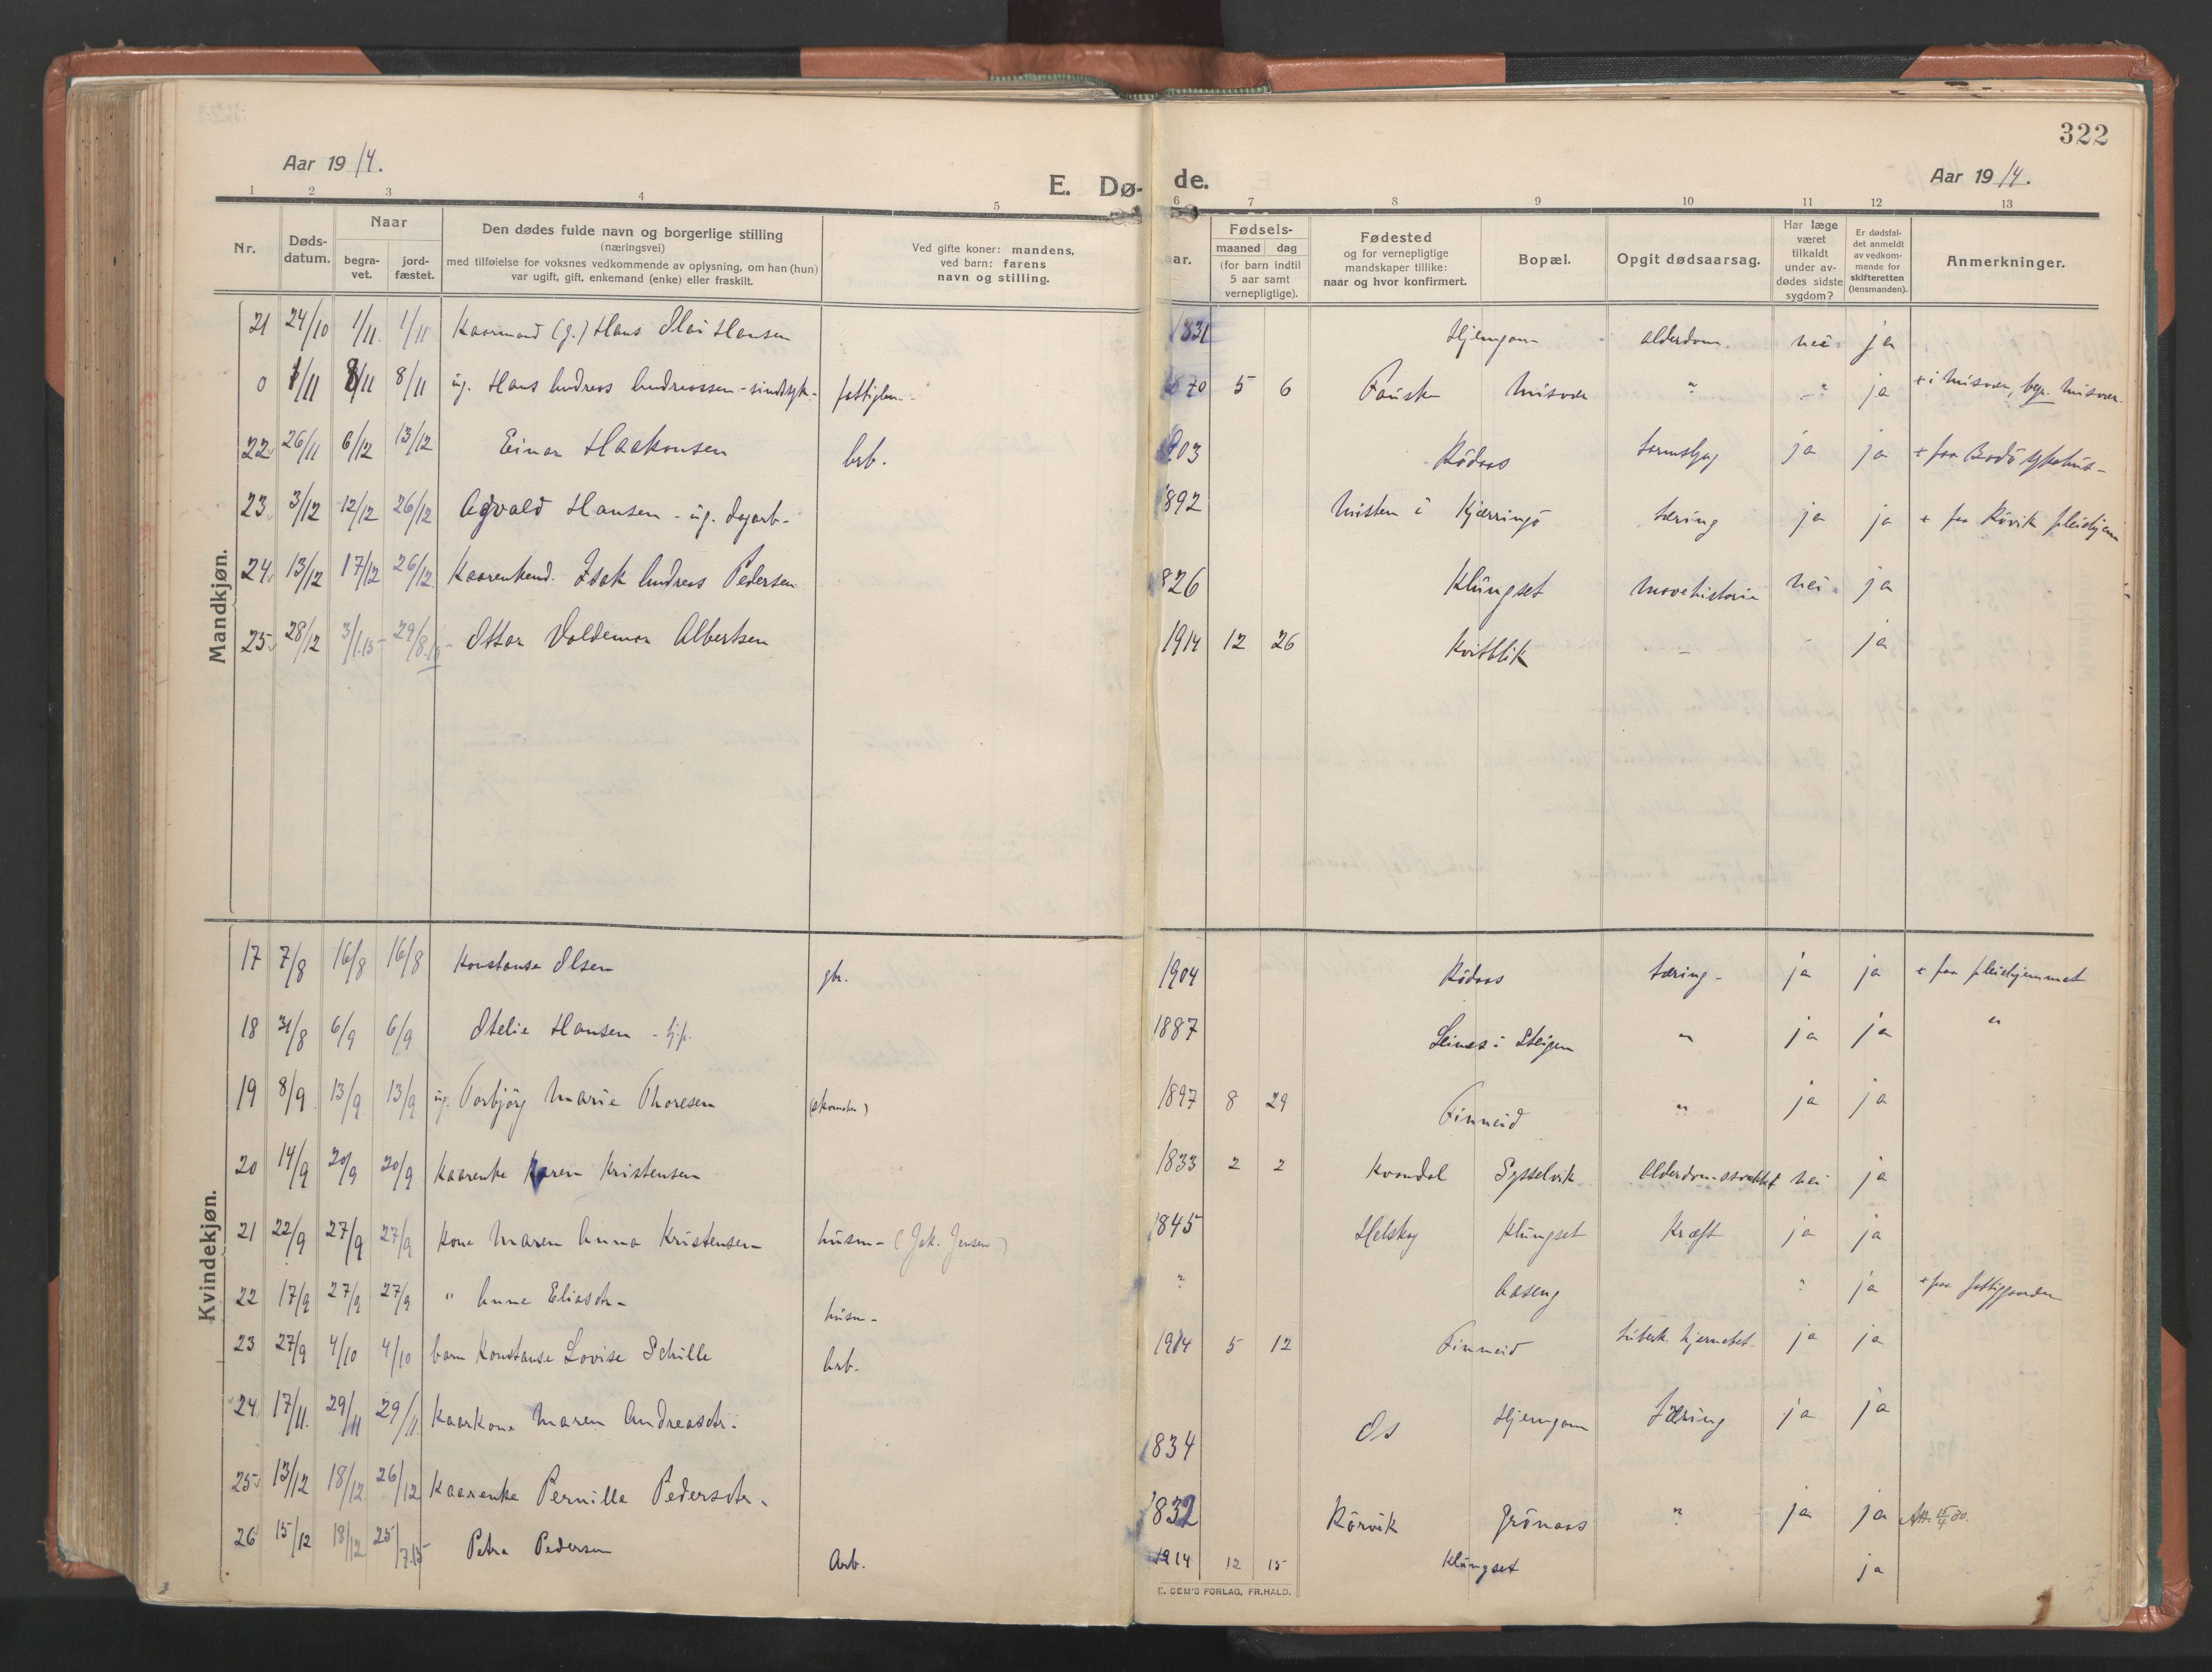 322
Aar 1914.
E. Dø- de.
Aar 1914.
1 2 3 4 5 6 7 8 9 10 11 12 13
Nr.
Døds-
datum.
Naar
begra-
vet.
jord-
fæstet.
Den dødes fulde navn og borgerlige stilling
(næringsvei)
med tilføielse for voksnes vedkommende av oplysning, om han (hun)
var ugift, gift, enkemand (enke) eller fraskilt.
Ved gifte koner: mandens,
ved barn: farens
navn og stilling.
ar.
Fødsels-
maaned dag
(for barn indtil
5 aar samt
vernepligtige).
Fødested
og for vernepligtige
mandskaper tillike:
naar og hvor konfirmert.
Bopæl.
Opgit dødsaarsag.
Har læge
været
tilkaldt
under av-
dødes sidste
sygdom?
Er dødsfal-
det anmeldt
av vedkom-
mende for
skifteretten
(lensmanden).
Anmerkninger.
Mandkjøn.
21 24/10 1/11. 1/11 Kaarmand (g.) Hans Olai Hansen 1831 Hjemgam alderdom nei ja
0 1/11 8/11 8/11 ug. Hans Andreas Andreassen - sindsyk - fattiglem - 1870 5 6 Fauske Misvær " " ja + i Misvær, begr. Misvær.
22 26/11 6/12 13/12 Einar Haakonsen Arb. 1903 Rödaas ja ja + paa Bodö sykehus -
23 3/12 12/12 26/12 Agvald Hansen - ug. dagarb - 1892 Misten i Kjærringö tæring ja ja + paa Rövik pleiehjem
24 13/12 17/12 26/12 Kaarenkemd. Isak Andreas Pedersen 1826 Klüngset nei ja
25 28/12 3/1.15 29/8.15 Ottar Valdemar Albertsen 1914 12 26 Kvitblik - ja
Kvindekjøn.
17 7/8 16/8 16/8 Konstanse Olsen gbr. 1904 Rödaas tæring - ja ja + paa pleiehjemmet
18 31/8 6/9 6/9 Otelie Hansen - tjp. 1887 Leines i Steigen " ja ja "
19 8/9 13/9 13/9 ug. Torbjörg Marie Thoresen (skomaker) 1897 8 29 Finneid " ja ja
20 14/9 20/9 20/9 Kaarenke Karen Kristensen 1833 2 2 Kvandal Sysselvik Alderdomssvakhet nei ja
21 22/9 27/9 27/9 Kone Maren Anna Kristensen husm - (Jak. Jensen) 1845 Helskog Klüngset Kræft ja ja
22 17/9 27/9 27/9 " Anna Eliasdtr - husm - " Aaseng " ja + paa fattiggaarden
23 27/9 4/10 4/10 barn Konstanse Lovise Schille Arb. 1914 5 12 Finneid tuberk. hjernebet. ja ja
24 17/11. 29/11 29/11 Kaarkone Maren Andreasdtr. 1834 Os Hjemgam Tæring ja ja
25 13/12 18/12 26/12 Kaarenke Pernille Pedersdtr. 1832 Rörvik Grönaas " ja ja Att. 15/4 30.
26 15/12 18/12 25/7.15 Petra Pedersen Arb. 1914 12 15 Klüngset ja
E. SEM'S FORLAG, FR.HALD.